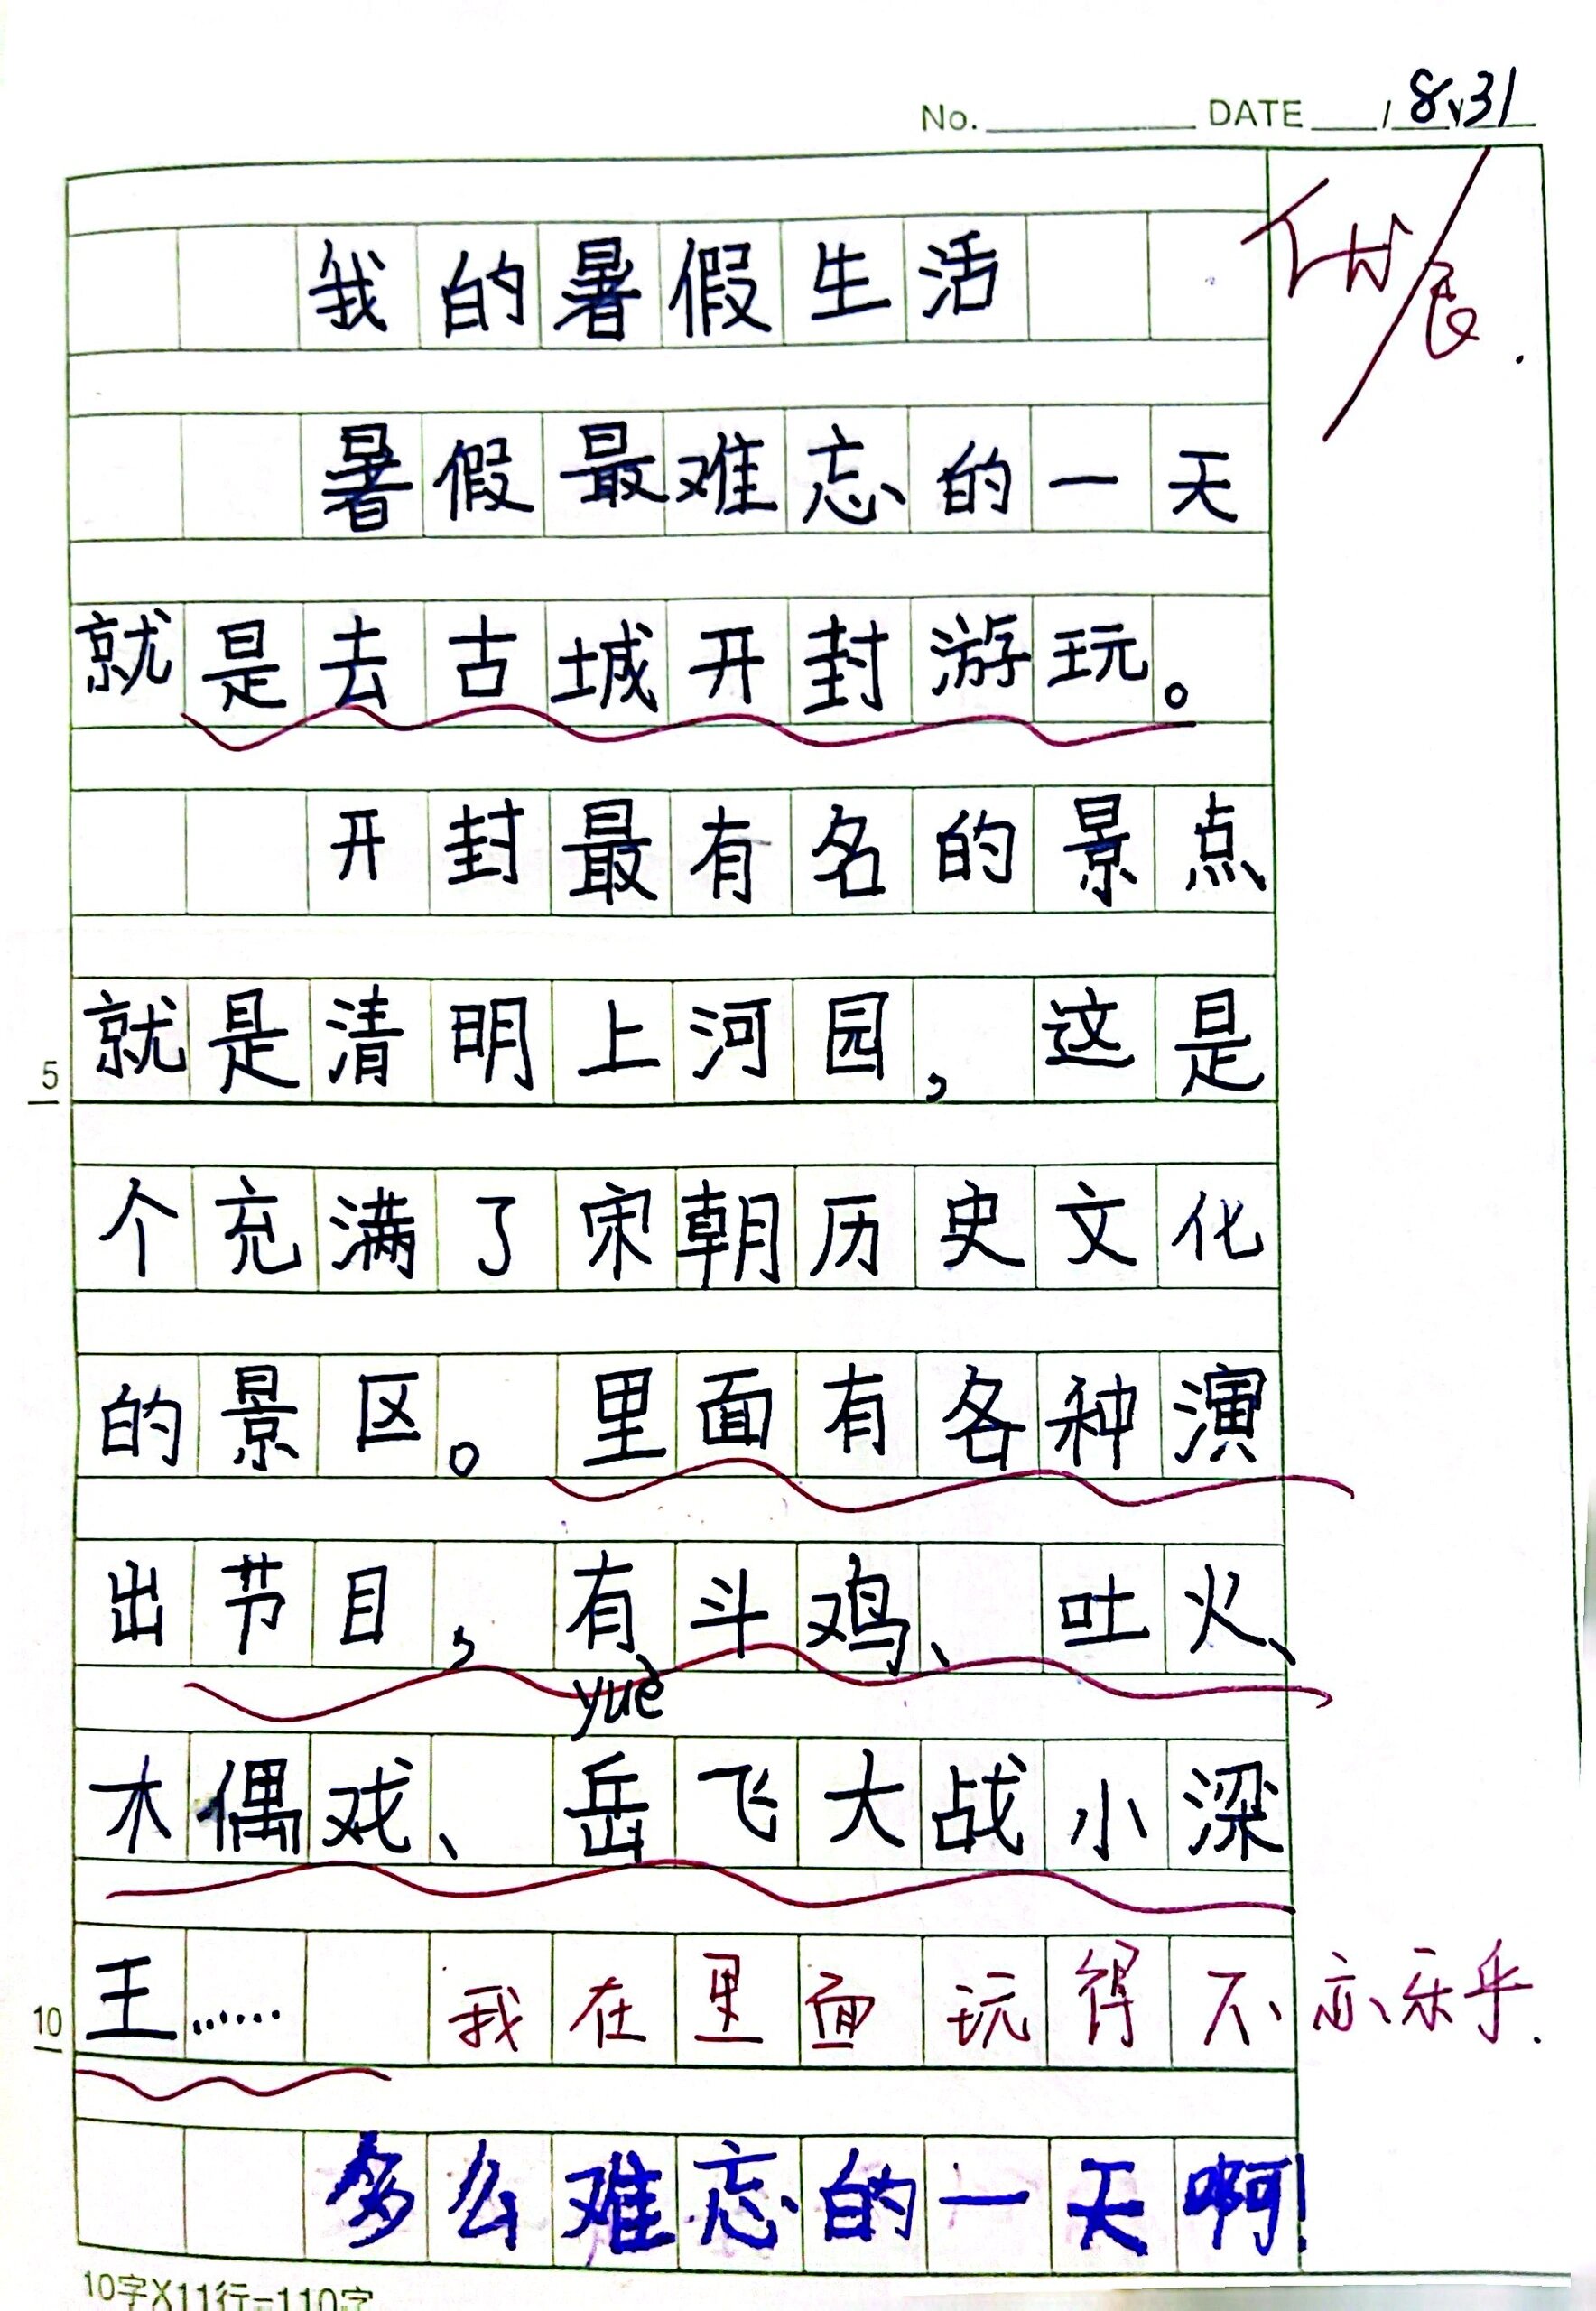 No. DATE / 8 31
我的暑假生活
优
暑假最难忘的一天
就是去古城开封游玩。
开封最有名的景点
就是清明上河园，这是
5
个充满了宋朝历史文化
的景区。里面有各种演
出节目，有斗鸡、吐火、
yuè
木偶戏、岳飞大战小梁
王……我在里面玩得不亦乐乎.
10
多么难忘的一天啊！
10字X11行=110字